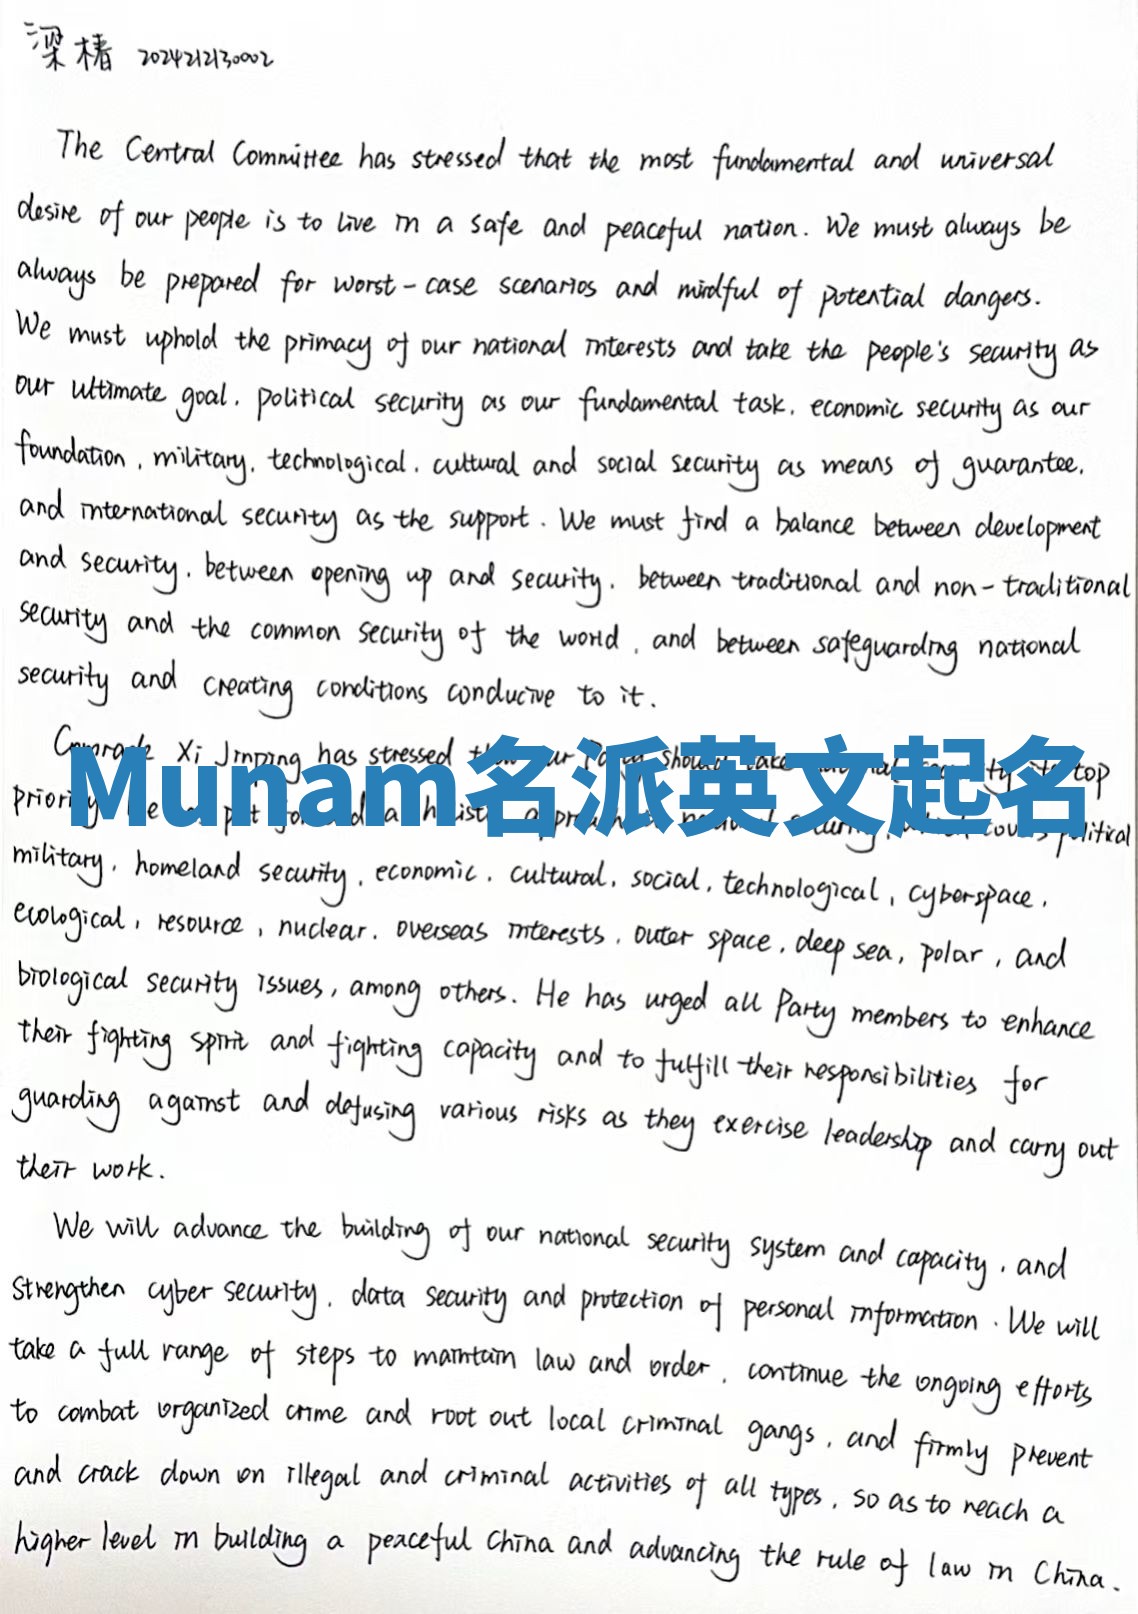 梁椿 2024212130002
The Central Committee has stressed that the most fundamental and universal
desire of our people is to live in a safe and peaceful nation. We must always be
always be prepared for worst-case scenarios and mindful of potential dangers.
We must uphold the primacy of our national interests and take the people's security as
our ultimate goal, political security as our fundamental task, economic security as our
foundation, military, technological, cultural and social security as means of guarantee,
and international security as the support. We must find a balance between development
and security, between opening up and security, between traditional and non-traditional
security and the common security of the world, and between safeguarding national
security and creating conditions conducive to it.
Comrade Xi Jinping has stressed our Party should take top
Munam名派英文起名
priority political
military, homeland security, economic, cultural, social, technological, cyberspace,
ecological, resource, nuclear, overseas interests, outer space, deep sea, polar, and
biological security issues, among others. He has urged all Party members to enhance
their fighting spirit and fighting capacity and to fulfill their responsibilities for
guarding against and defusing various risks as they exercise leadership and carry out
their work.
We will advance the building of our national security system and capacity, and
strengthen cyber security, data security and protection of personal information. We will
take a full range of steps to maintain law and order, continue the ongoing efforts
to combat organized crime and root out local criminal gangs, and firmly prevent
and crack down on illegal and criminal activities of all types, so as to reach a
higher level in building a peaceful China and advancing the rule of law in China.